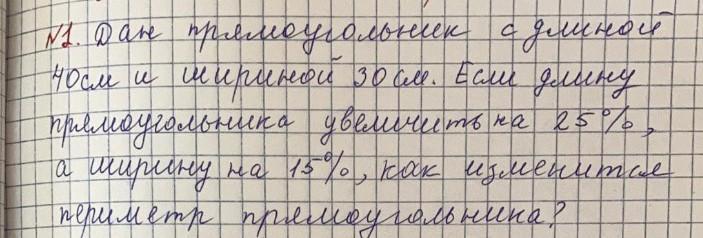 №1. Дан прямоугольник с длиной
40см и шириной 30см. Если длину
прямоугольника увеличить на 25%,
а ширину на 15%, как изменится
периметр прямоугольника?